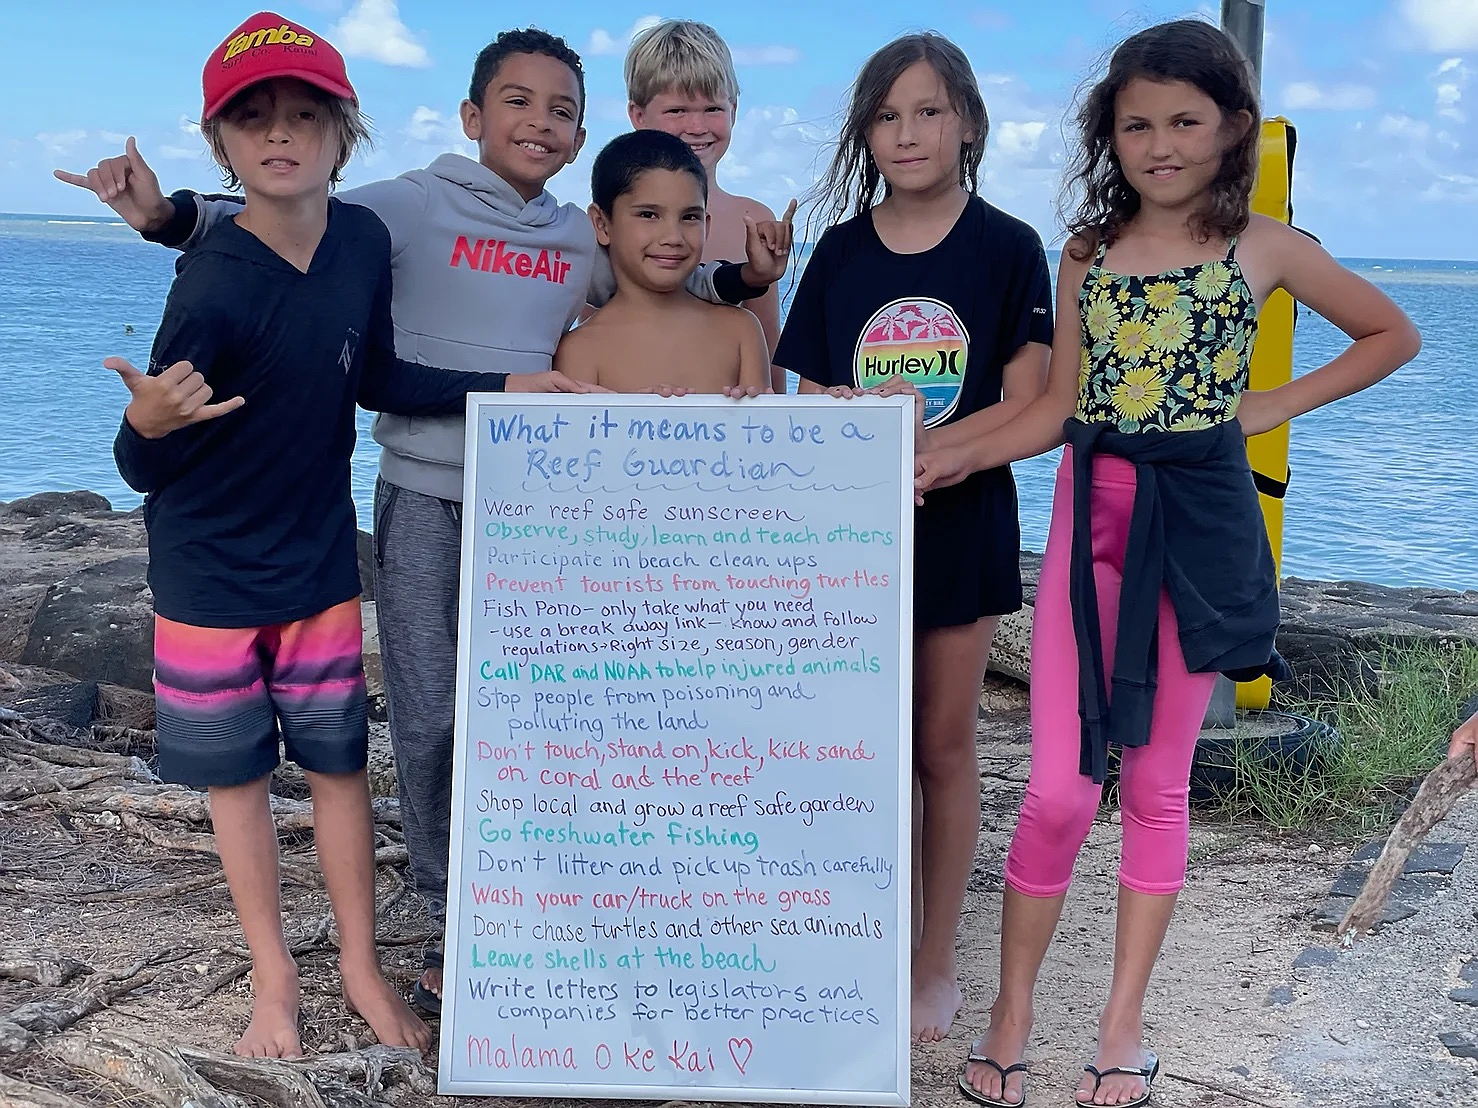 Tamba
Surf Co. Kauai
NikeAir
Hurley
What it means to be a
Reef Guardian
Wear reef safe sunscreen
Observe, study, learn and teach others
Participate in beach clean ups
Prevent tourists from touching turtles
Fish Pono - only take what you need
- use a break away link - know and follow
regulations → Right size, season, gender
Call DAR and NOAA to help injured animals
Stop people from poisoning and
polluting the land
Don't touch, stand on, kick, kick sand
on coral and the reef
Shop local and grow a reef safe garden
Go freshwater fishing
Don't litter and pick up trash carefully
Wash your car/truck on the grass
Don't chase turtles and other sea animals
Leave shells at the beach
Write letters to legislators and
companies for better practices
Malama O ke Kai ♡